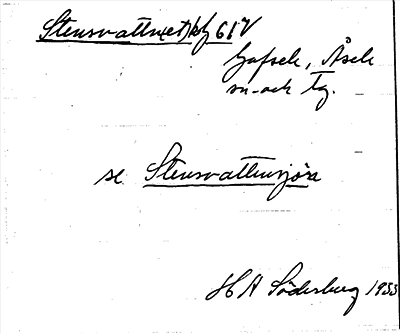 Stensvattnet) kbl 61 V
Gafsele, Åsele
sn och tg.
se Stensvattensjön
H A Söderberg 1933